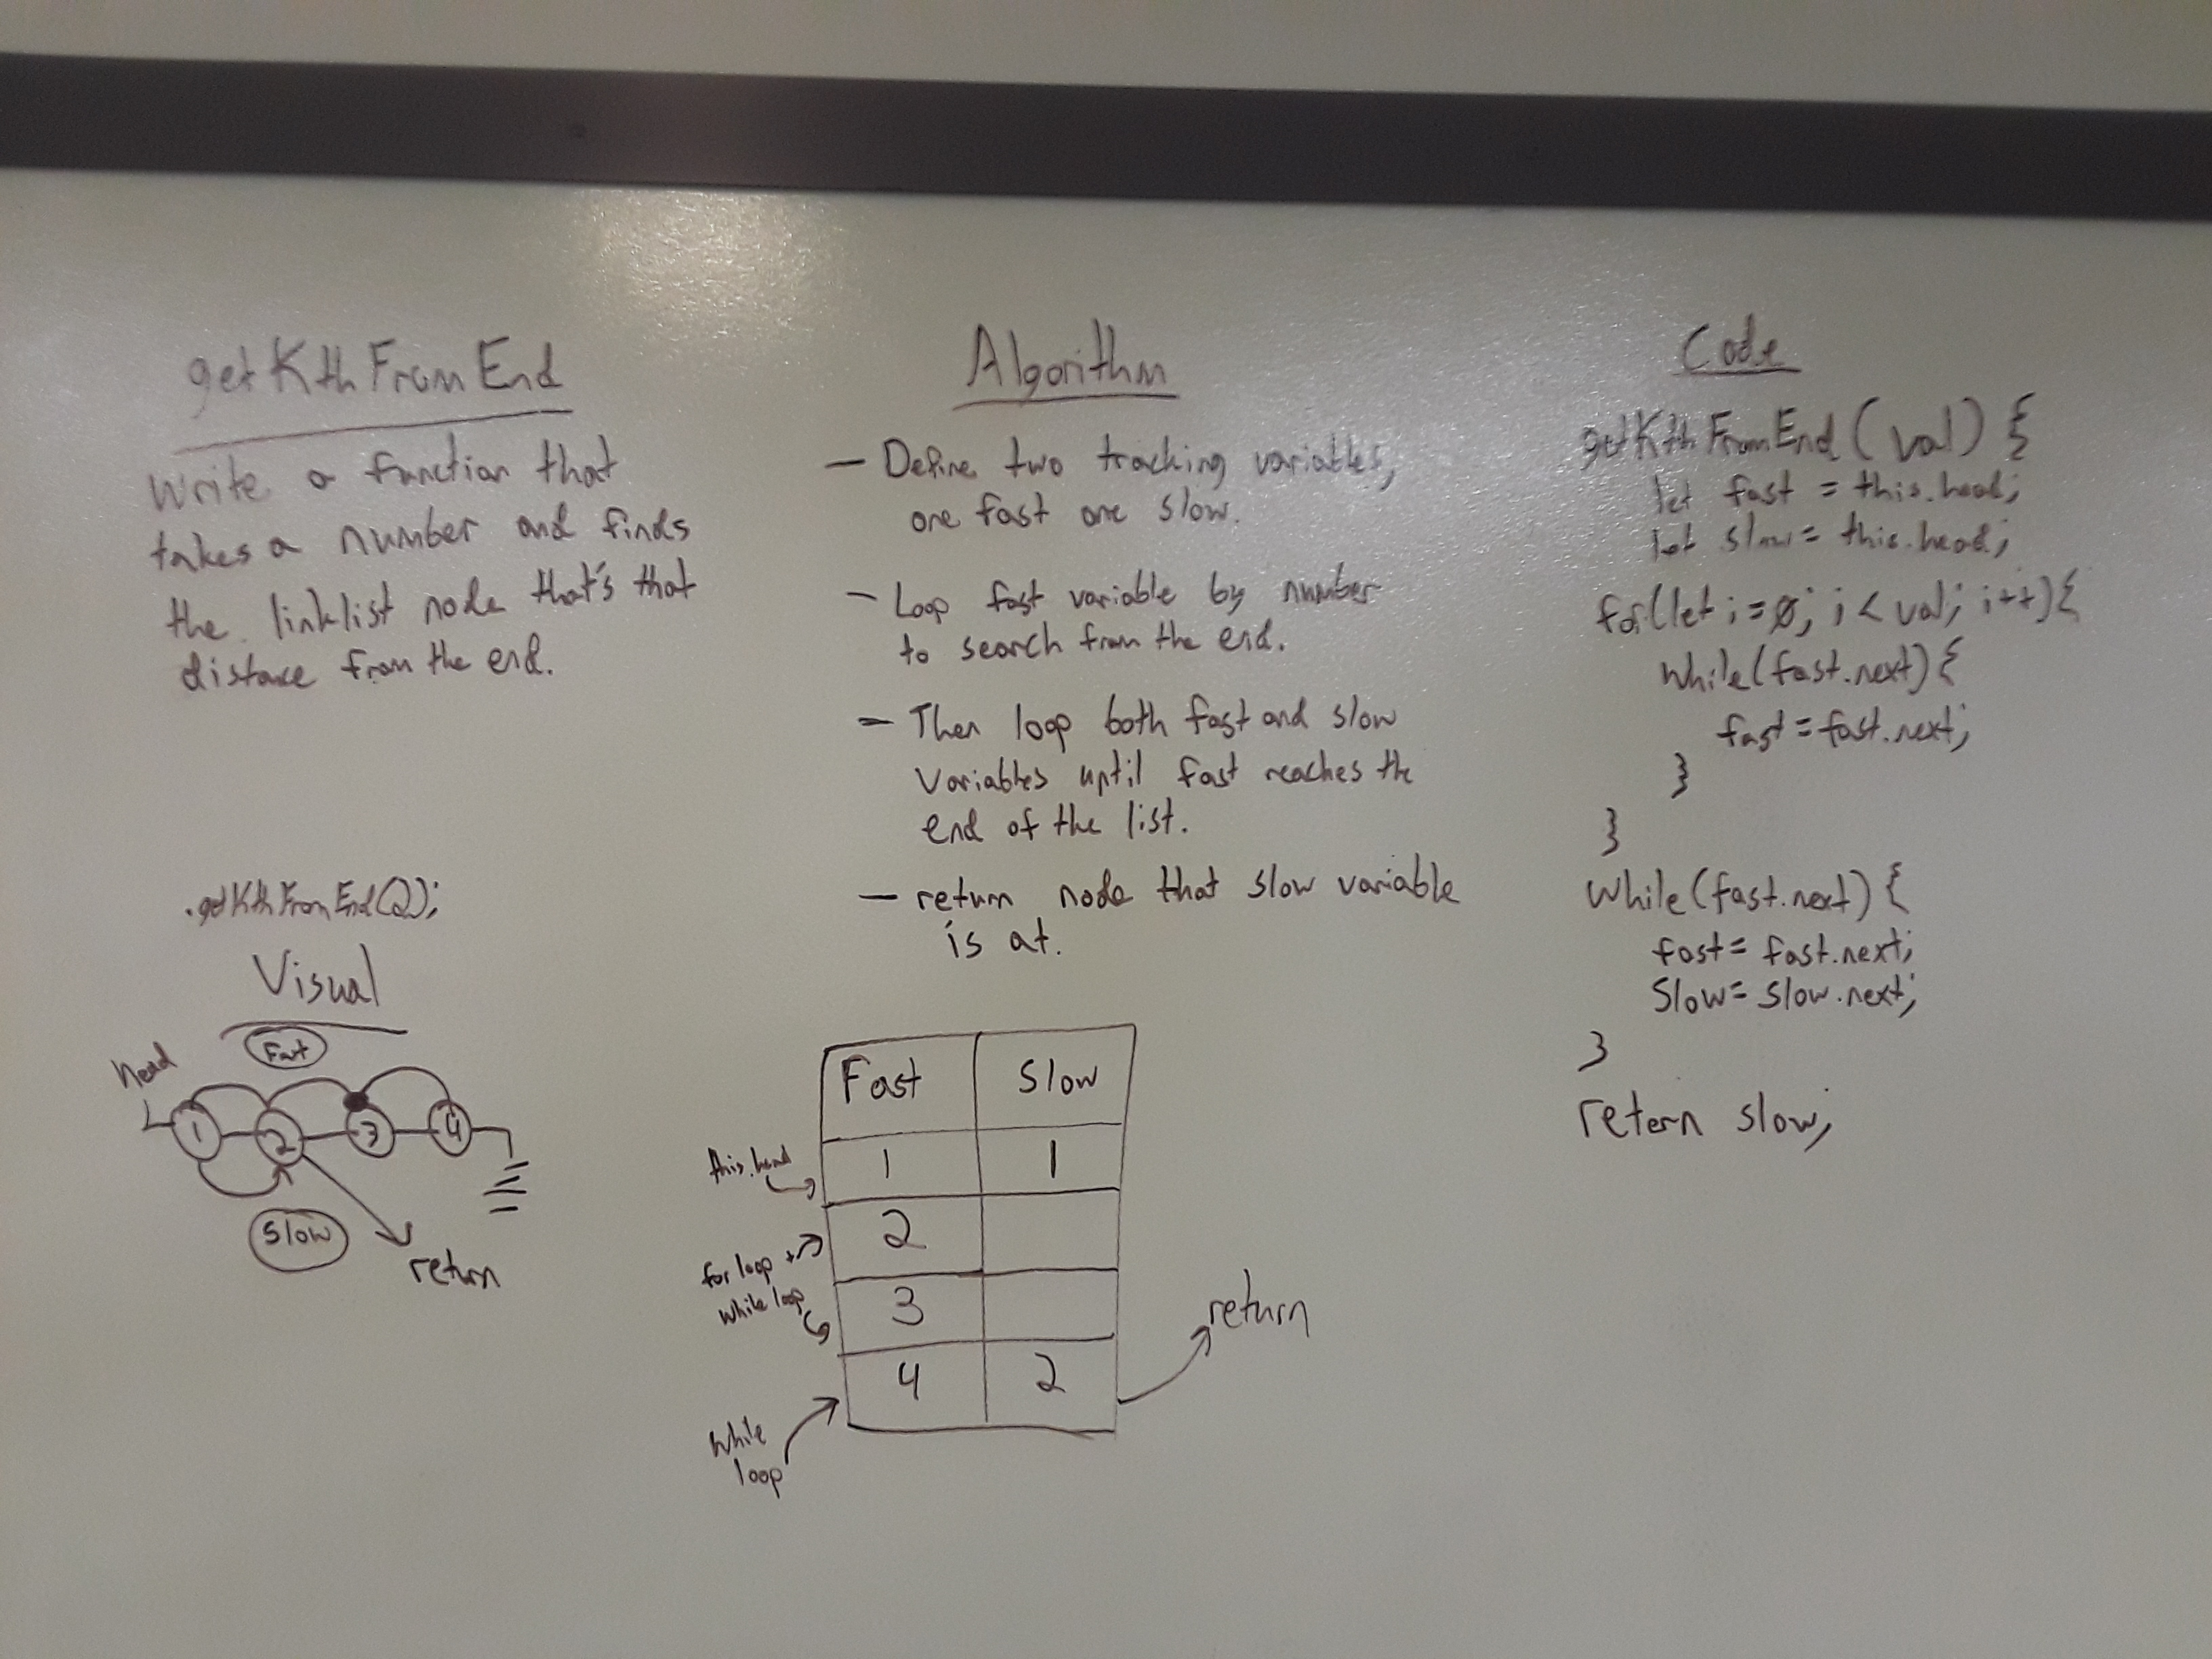 getKthFromEnd
Write a function that
takes a number and finds
the linklist node that's that
distance from the end.
.getKthFromEnd(2);
Visual
Fast
head
1 2 3 4
Slow
return
Algorithm
— Define two tracking variables,
one fast one slow.
— Loop fast variable by number
to search from the end.
— Then loop both fast and slow
variables until fast reaches the
end of the list.
— return node that slow variable
is at.
Fast Slow
this.head
1 1
2
for loop +
while loop
3
4 2
while
loop
return
Code
getKthFromEnd(val) {
let fast = this.head;
let slow = this.head;
for(let i = 0; i < val; i++){
while(fast.next){
fast = fast.next;
}
}
while(fast.next) {
fast = fast.next;
Slow = slow.next;
}
retern slow;